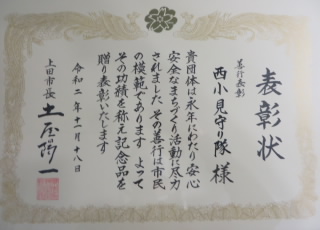 表彰状
善行表彰
西小見守り隊 様
貴団体は永年にわたり安心
安全なまちづくり活動に尽力
されました その善行は市民
の模範であります よって
その功績を称え記念品を
贈り表彰いたします
令和二年十一月十八日
上田市長 土屋陽一